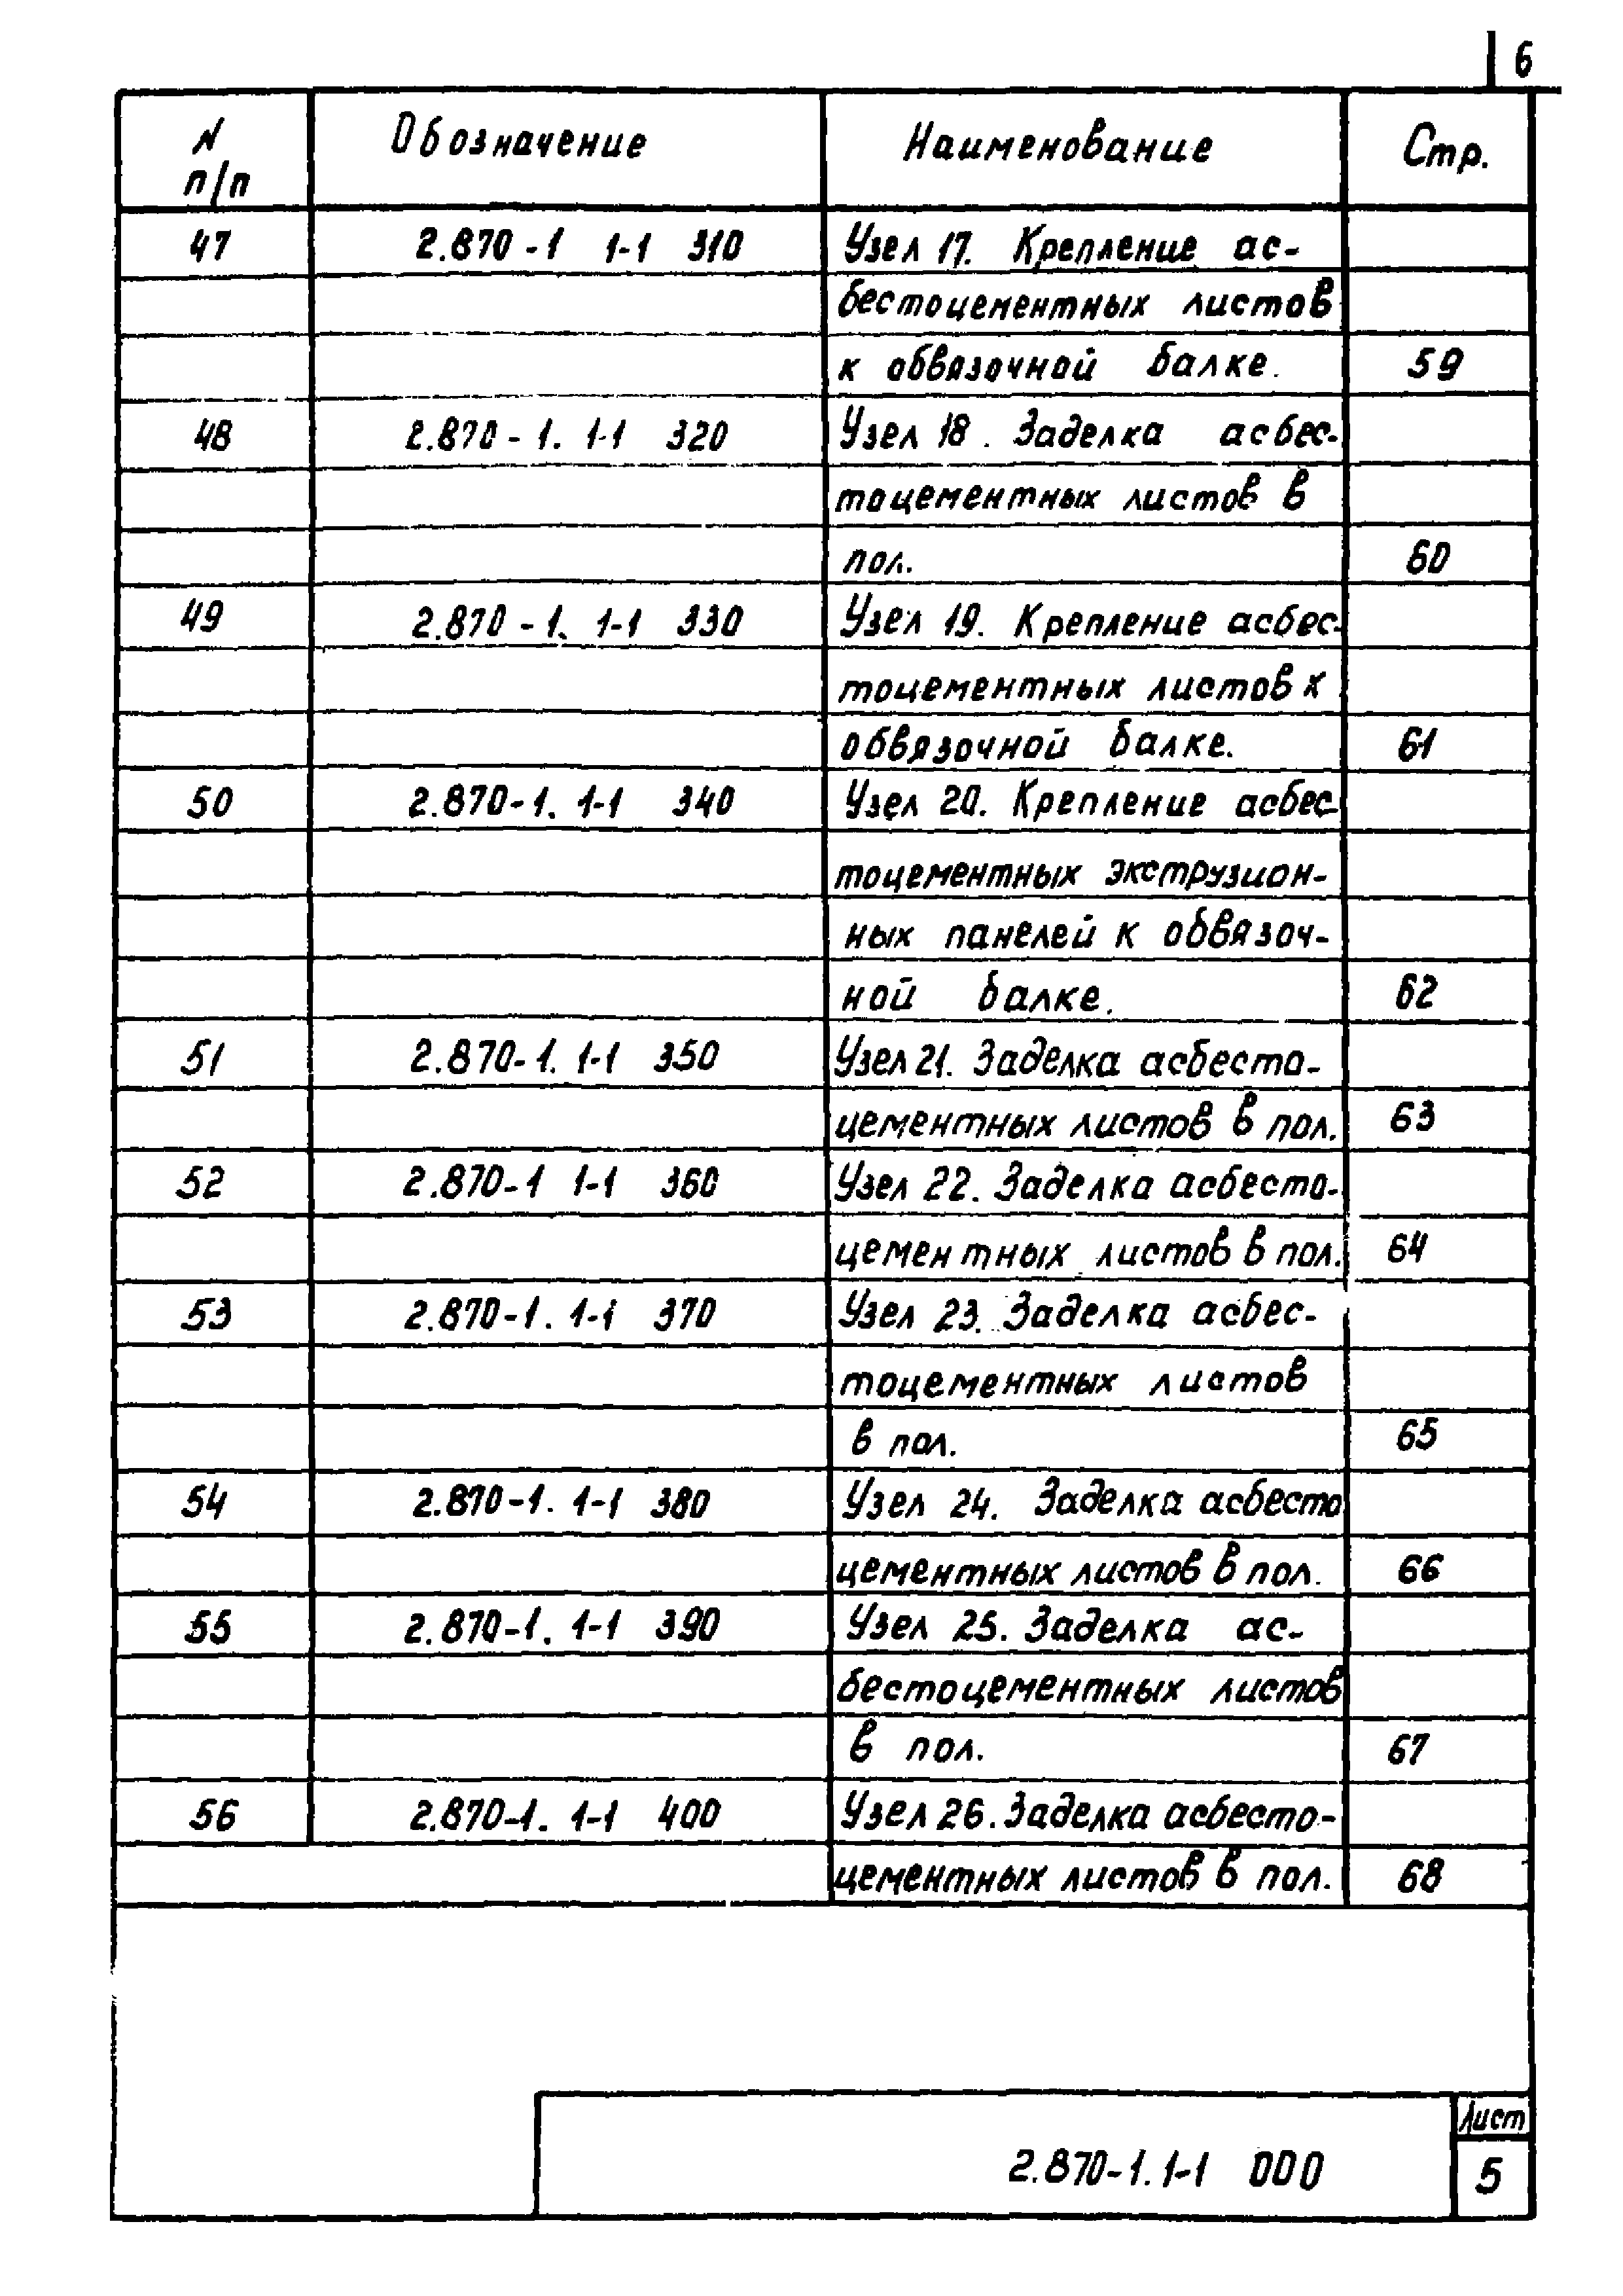 6
N п/п Обозначение Наименование Стр.
47 2.870-1 1-1 310 Узел 17. Крепление ас-
бестоцементных листов
к обвязочной балке. 59
48 2.870-1. 1-1 320 Узел 18. Заделка асбес-
тоцементных листов в
пол. 60
49 2.870-1. 1-1 330 Узел 19. Крепление асбес-
тоцементных листов к
обвязочной балке. 61
50 2.870-1. 1-1 340 Узел 20. Крепление асбес-
тоцементных экструзион-
ных панелей к обвязоч-
ной балке. 62
51 2.870-1. 1-1 350 Узел 21. Заделка асбесто-
цементных листов в пол. 63
52 2.870-1 1-1 360 Узел 22. Заделка асбесто-
цементных листов в пол. 64
53 2.870-1. 1-1 370 Узел 23. Заделка асбес-
тоцементных листов
в пол. 65
54 2.870-1. 1-1 380 Узел 24. Заделка асбесто
цементных листов в пол. 66
55 2.870-1. 1-1 390 Узел 25. Заделка ас-
бестоцементных листов
в пол. 67
56 2.870-1. 1-1 400 Узел 26. Заделка асбесто-
цементных листов в пол. 68
Лист
2.870-1. 1-1 000 5